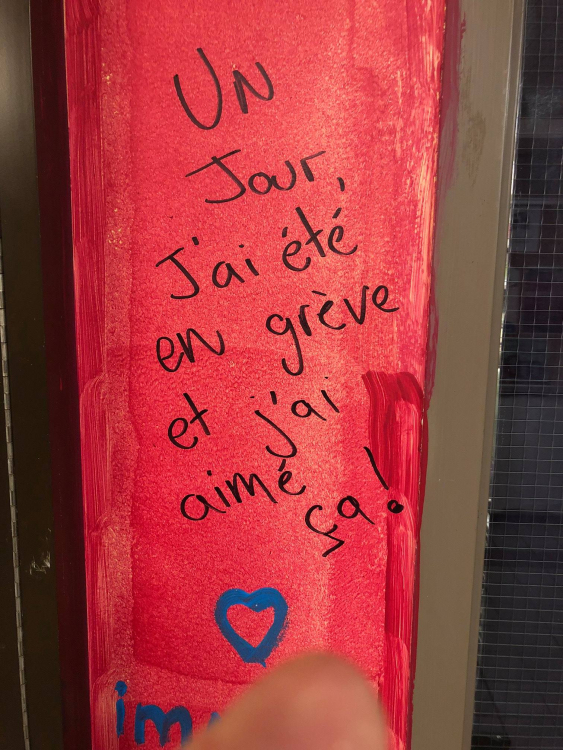 UN
Jour,
J'ai été
en grève
et j'ai
aimé
ça!